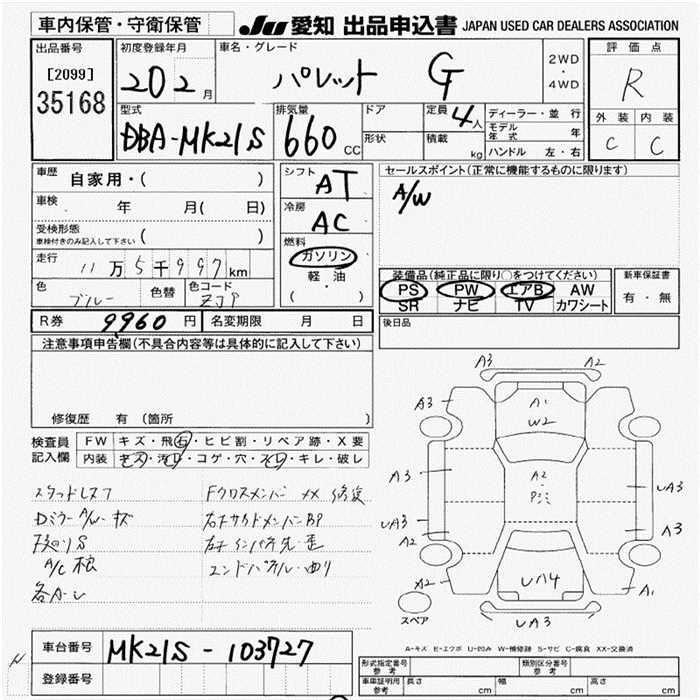 車内保管・守衛保管 JU 愛知 出品申込書 JAPAN USED CAR DEALERS ASSOCIATION
出品番号 初度登録年月 車名・グレード 評価点
[2099] 20 2月 パレット G 2WD・4WD R
35168
型式 排気量 ドア 定員 4人 ディーラー・並行 外装 内装
DBA-MK21S 660cc 形状 積載 kg モデル年式 年 C C
ハンドル 左・右
車歴 自家用・( ) シフト AT セールスポイント(正常に機能するものに限ります)
車検 年 月( 日) 冷房 AC A/W
受検形態
車検付きのみ記入して下さい ( )
燃料 ガソリン 軽・油 ( ・ )
走行 11万5千997km 装備品(純正品に限り○をつけてください) 新車保証書
色 ブルー 色替 色コード ZJP PS PW エアB AW 有・無
SR ナビ TV カワシート
R券 9960円 名変期限 月 日 後日品
注意事項申告欄(不具合内容等は具体的に記入して下さい)
修復歴 有 (箇所
検査員記入欄 FW キズ・飛石・ヒビ割・リペア跡・X要
内装 キズ・汚れ・コゲ・穴・スレ・キレ・破レ
スタッドレス7 Fクロスメンバー XX 修復
Dミラー A/W・キズ 右サイドメンバーBP
右インパネ先・歪
A/C 根 エンドパネル・曲り
A3 A2
A3 A1 A3
W2
A3 A2 UA3
Pミミ
UA3 A3
A2
A2 UA4 A1
スペア UA3
A-キズ E-エクボ U-凹み W-補修跡 S-サビ C-腐食 XX-交換済
車台番号 MK21S-103727
登録番号
形式指定番号 参考 類別区分番号 参考
車庫証明用 参考 長さ cm 幅 cm 高さ cm